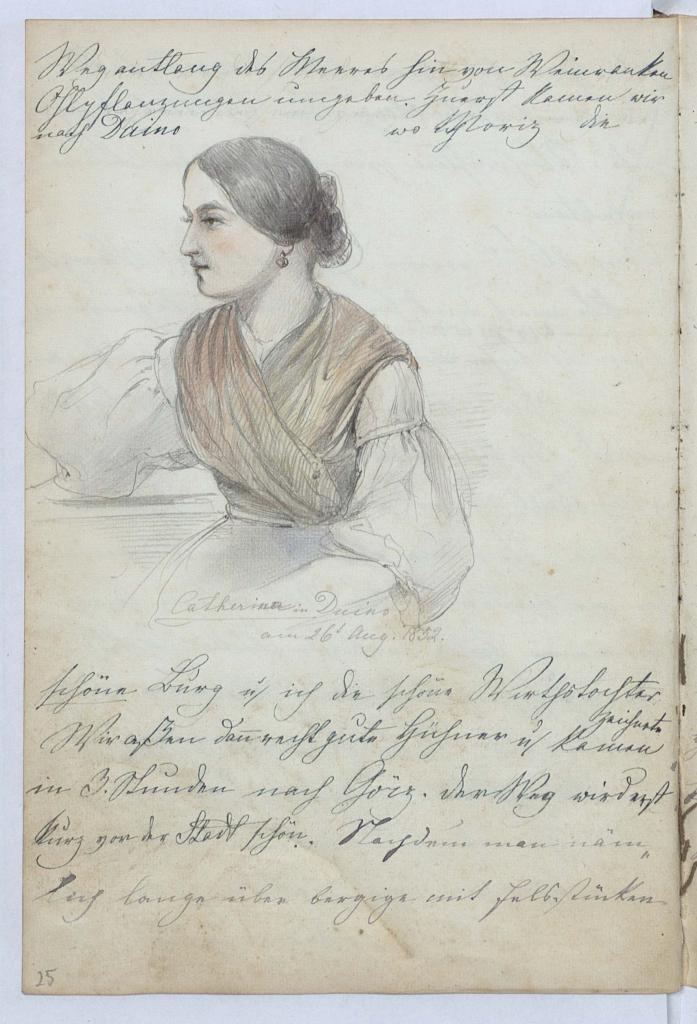 Weg entlang des Meeres hin von Weinranken
Ohlpflanzungen umgeben. Zuerst kamen wir
nach Duino wo Moriz die
Catherina in Duino
am 26t Aug. 1852.
schöne Burg u ich die schöne Wirthstochter
zeichnete
Wir aßen dann recht gute Hühner u kamen
in 3. Stunden nach Görz. der Weg wird erst
kurz vor der Stadt schön. Nachdem man näm„
lich lange über bergige mit Felsstücken
25